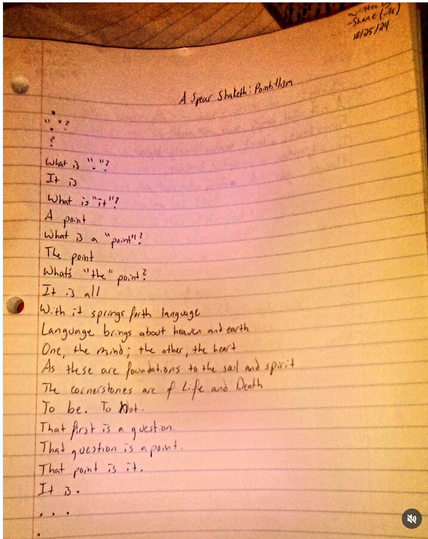 Written
Shane
10/25/24
A Spear Shaketh: Pointillism
.
"."?
.
?
What is "."?
It is
What is "it"?
A point
What is a "point"?
The point
What's "the" point?
It is all
With it springs forth language
Language brings about heaven and earth
One, the mind; the other, the heart
As these are foundations to the soil and spirit
The cornerstones are of Life and Death
To be. To Not.
That first is a question.
That question is a point.
That point is it.
It is.
. . .
.